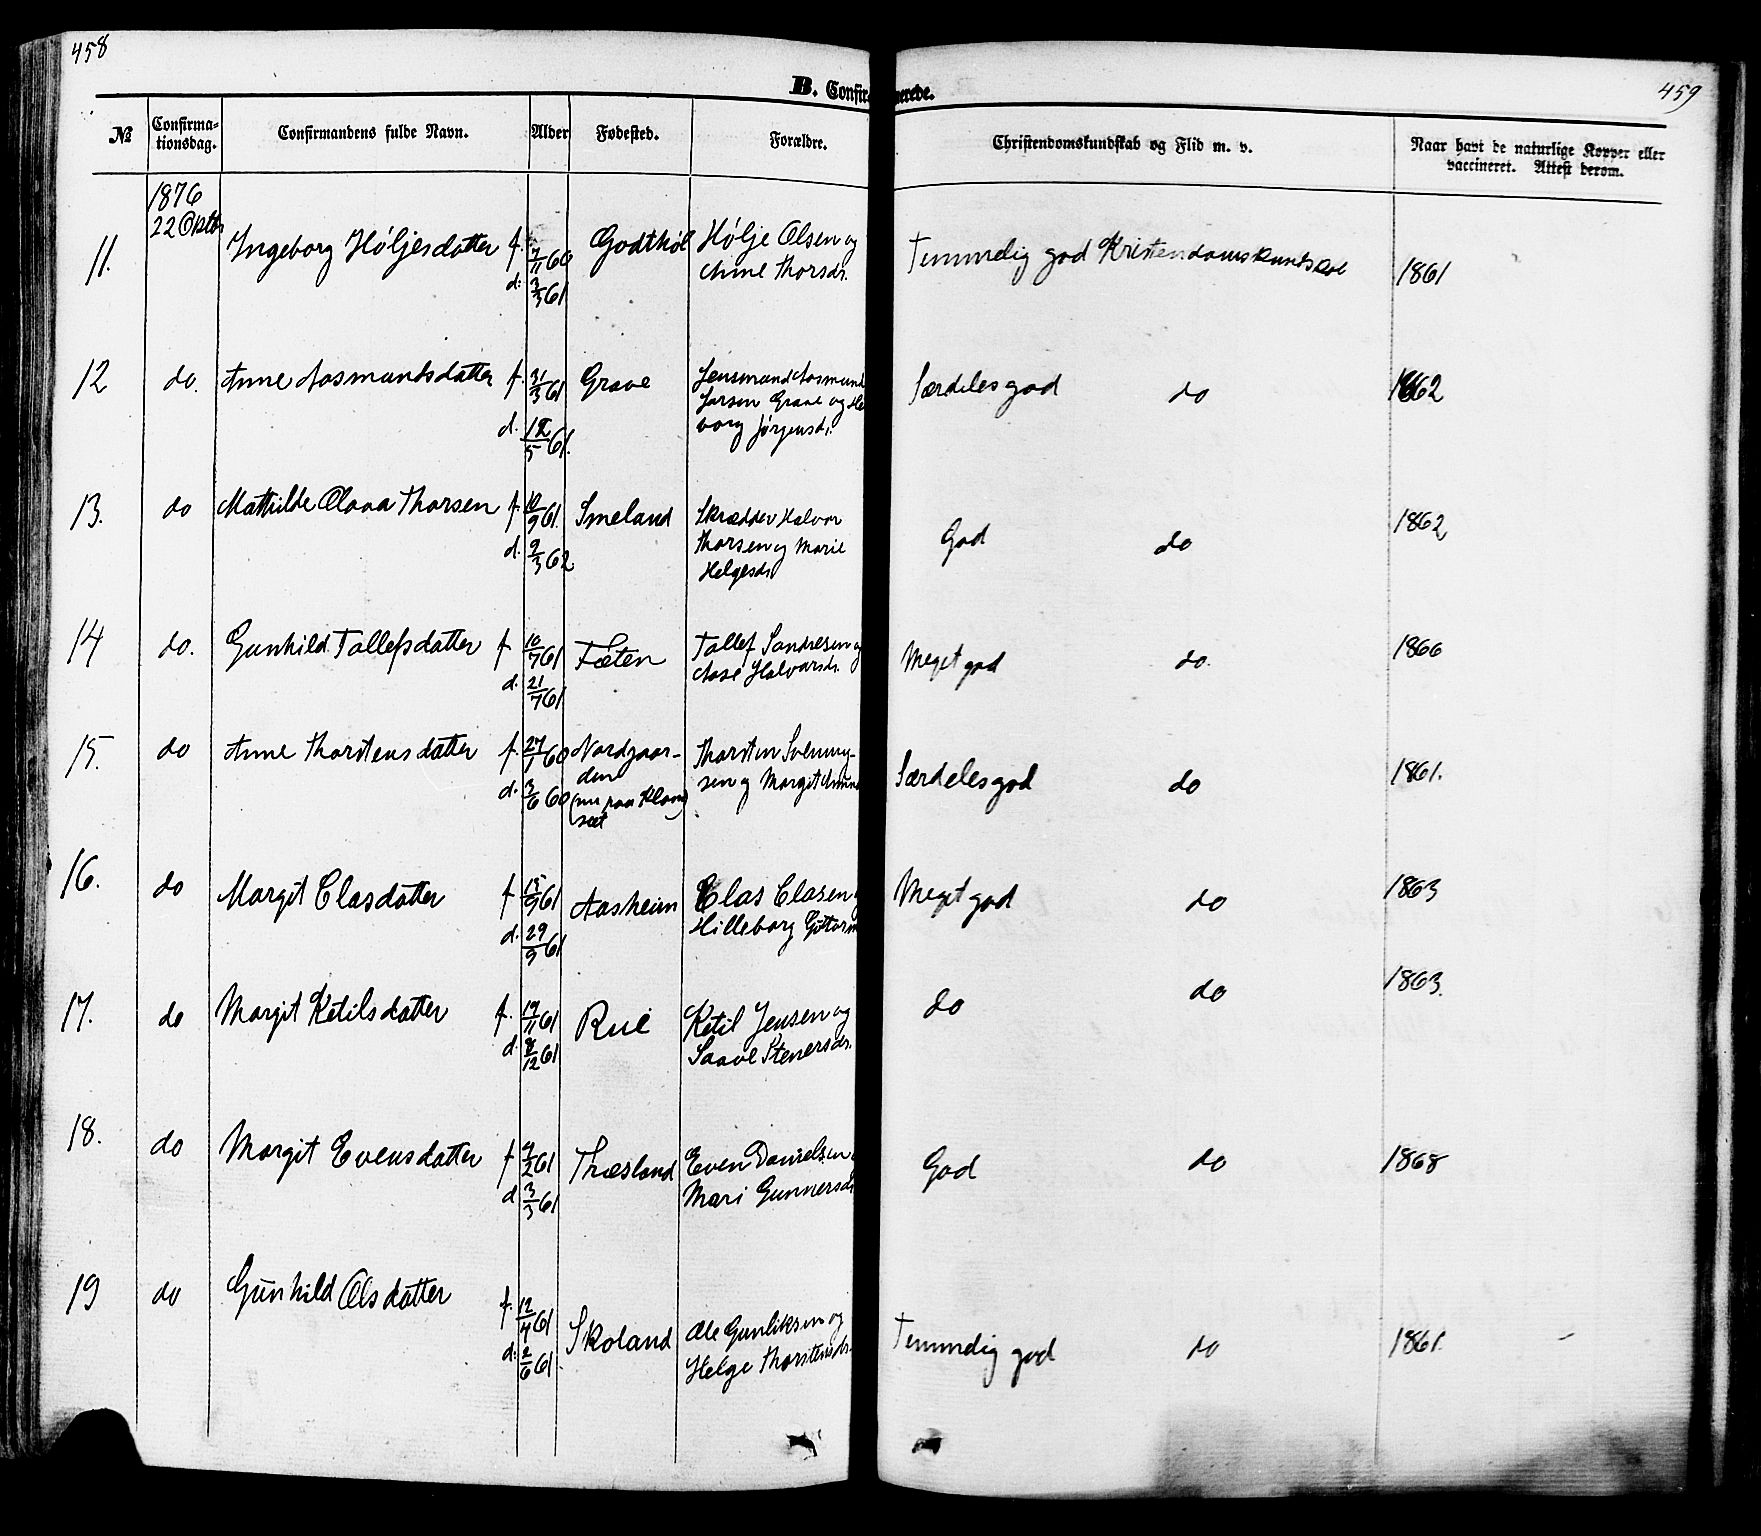 458
459
B. Confirmerede.
№ Confirmationsdag. Confirmandens fulde Navn. Alder Fødested. Forældre. Christendomskundskab og Flid m. v. Naar havt de naturlige Kopper eller vaccineret. Attest derom.
1876
22 Oktbr
11. Ingeborg Høljesdatter f. 7/11 60 Godthøl Hølje Olsen og Temmelig god Kristendomskundskab 1861
d: 3/3 61 Anne Thorsdr.
12 do. Anne Aasmundsdatter f. 31/3 61 Grave Aasmund Særdeles god do 1862
Grave og
d. 12/5 61. borg Jørgensdr.
13. do Mathilde Olava Thorsen f. 10/9 61. Smeland Skrædder Halvor God do 1862
d. 9/3 62 Thorsen og Marie
Helgesdr
14 do. Gunhild Tallefsdatter f 10/7 61 Fæten Tallef Sandresen og Meget god do. 1866
d. 21/7 61 Aase Halvorsdr.
15. do Anne Thorstensdatter f. 27/1 60 Nordgaar- Thorsten Svenung- Særdeles god do 1861.
d. 3/6 60 dene sen og Margit
(nu paa Klom
sæt
16. do Margit Olasdatter f 15/9 61 Aasheim Olas Olasen Meget god do 1863
d. 29/9 61 Hilleborg Guttorm
17. do Margit Ketilsdatter f. 19/11 61 Rue Ketil Jensen og do do 1863.
d. 8/12 61 Saave Stenersdr.
18. do Margit Evensdatter f 9/2 61 Træsland Even Danielsen God do 1868
d 3/3 61 Mari Gunnersdr
19 do Gunhild Olsdatter f. 12/4 61 Skoland Ole Gunliksen og Temmelig god do 1861.
d: 2/6 61. Helge Thorstensdr.